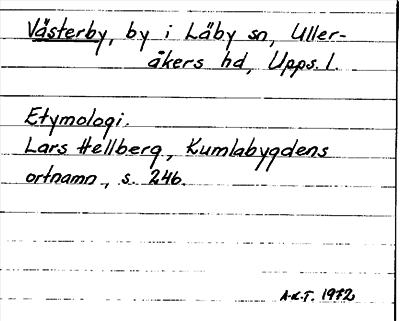 Västerby, by i Läby sn, Uller-
åkers hd, Upps. l.
Etymologi.
Lars Hellberg, Kumlabygdens
ortnamn, s. 246.
A-L.F. 1972